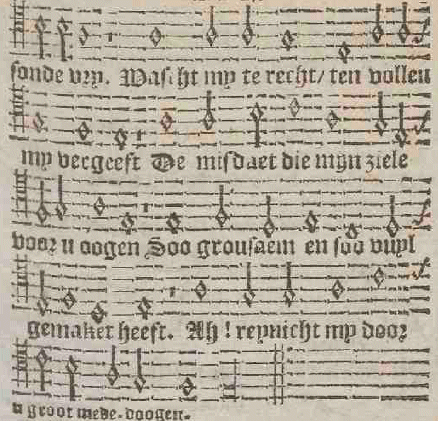 sonde vry. Wascht my te recht/ ten vollen
my vergeeft De misdaet die mijn ziele
voor u oogen Soo grousaem en soo vuyl
gemaket heeft. Ah! reynicht my door
u groot mede-doogen.